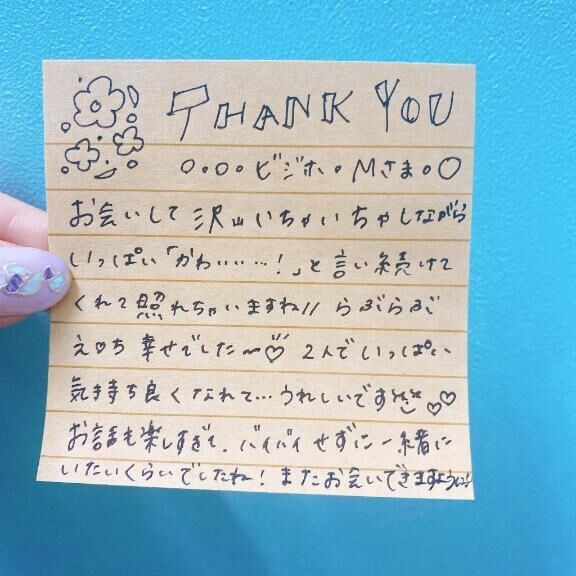 THANK YOU
○○○○ビジホ○Mさま○○
お会いして沢山いちゃいちゃしながら
いっぱい「かわいい…!」と言い続けて
くれて照れちゃいますね// らぶらぶ
え♡ち幸せでした〜♡ 2人でいっぱい
気持ち良くなれて…うれしいです♡♡
お話も楽しすぎて、バイバイせずに一緒に
いたいくらいでしたね! またお会いできますように!